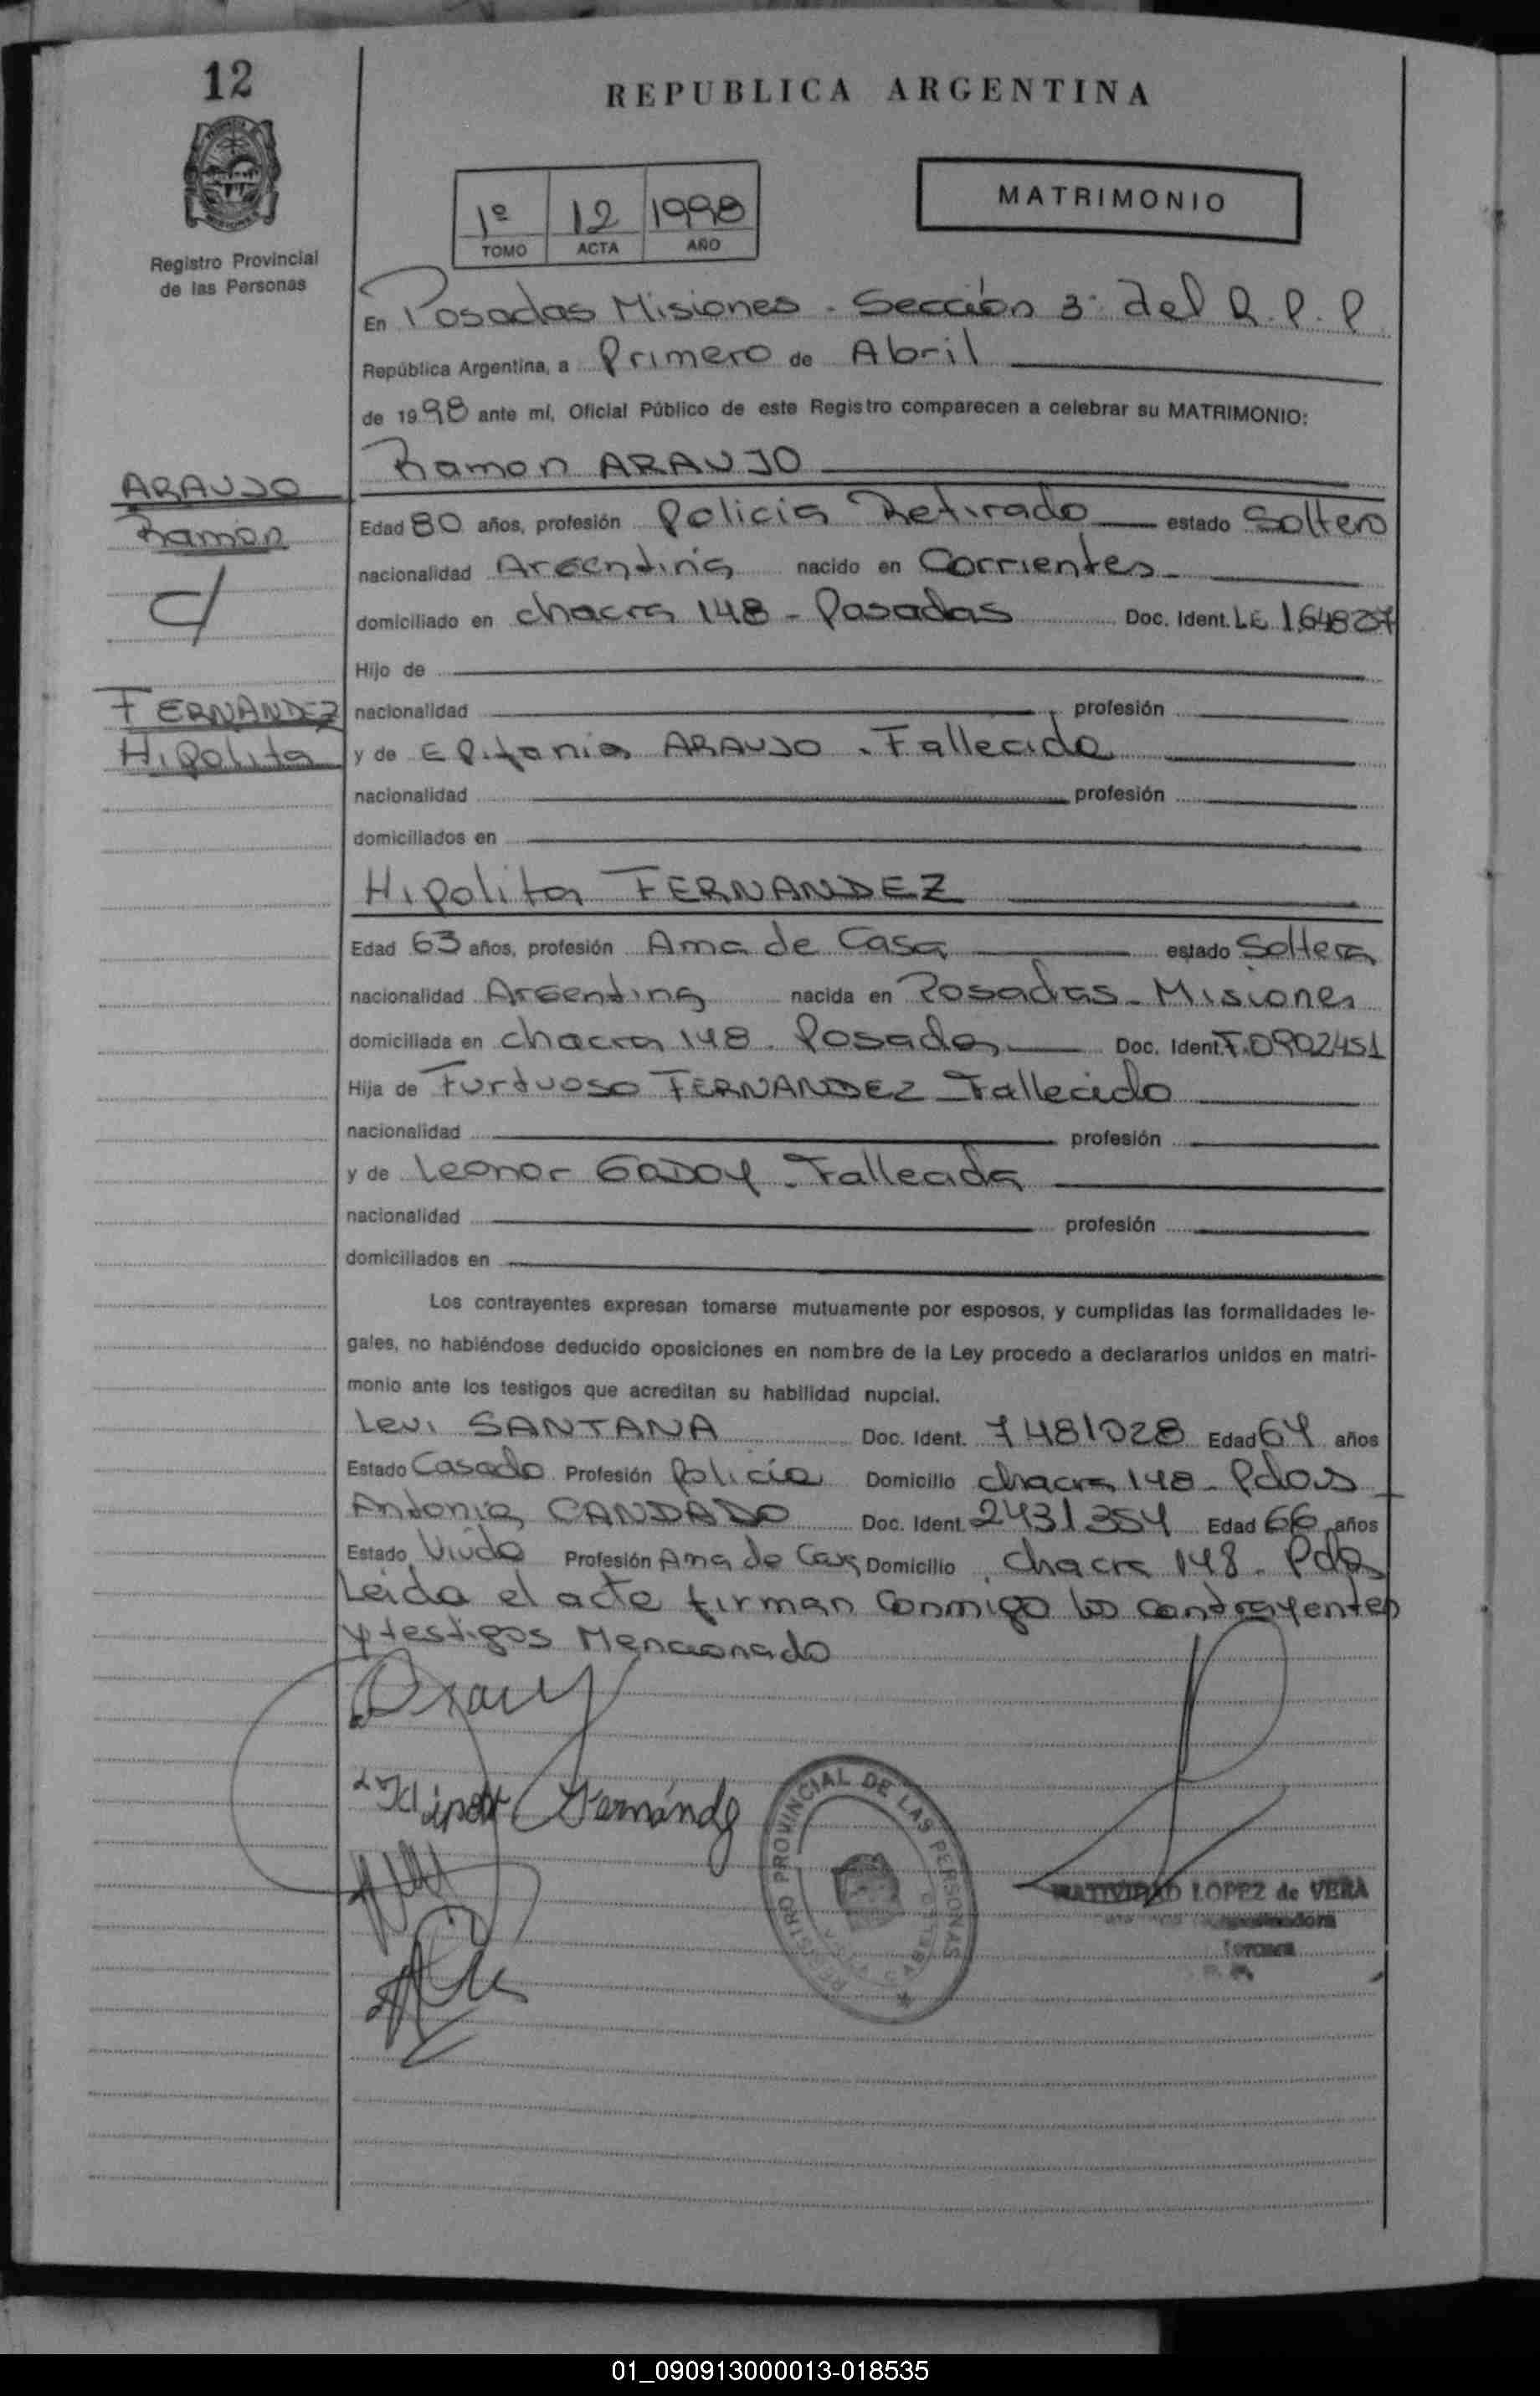 12
REPUBLICA ARGENTINA
MATRIMONIO
1º 12 1998
TOMO ACTA AÑO
Registro Provincial
de las Personas
En Posadas Misiones - Sección 3ª del R.P.P
República Argentina, a Primero de Abril
de 1998 ante mí, Oficial Público de este Registro comparecen a celebrar su MATRIMONIO:
Ramon ARAUJO
ARAUJO
Ramon
c/
FERNANDEZ
Hipolita
Edad 80 años, profesión Policia Retirado estado Soltero
nacionalidad Argentina nacido en Corrientes
domiciliado en chacra 148 - Posadas Doc. Ident. LE 1648257
Hijo de
nacionalidad profesión
y de Epifania ARAUJO - Fallecida
nacionalidad profesión
domiciliados en
Hipolita FERNANDEZ
Edad 63 años, profesión Ama de Casa estado Soltera
nacionalidad Argentina nacida en Posadas - Misiones
domiciliada en chacra 148 - Posadas Doc. Ident. F.0902451
Hija de Furtuoso FERNANDEZ - Fallecido
nacionalidad profesión
y de Leonor GODOY - Fallecida
nacionalidad profesión
domiciliados en
Los contrayentes expresan tomarse mutuamente por esposos, y cumplidas las formalidades le-
gales, no habiéndose deducido oposiciones en nombre de la Ley procedo a declararlos unidos en matri-
monio ante los testigos que acreditan su habilidad nupcial.
Levi SANTANA Doc. Ident. 7481028 Edad 64 años
Estado Casado Profesión Policía Domicilio chacra 148 - Pdas
Antonia CANDADO Doc. Ident. 2431354 Edad 66 años
Estado Viuda Profesión Ama de Casa Domicilio chacra 148 - Pdas
Leida el acta firman conmigo los contrayentes
y testigos Mencionado
Fernández
REGISTRO PROVINCIAL DE LAS PERSONAS
NATIVIDAD LOPEZ de VERA
01_090913000013-018535